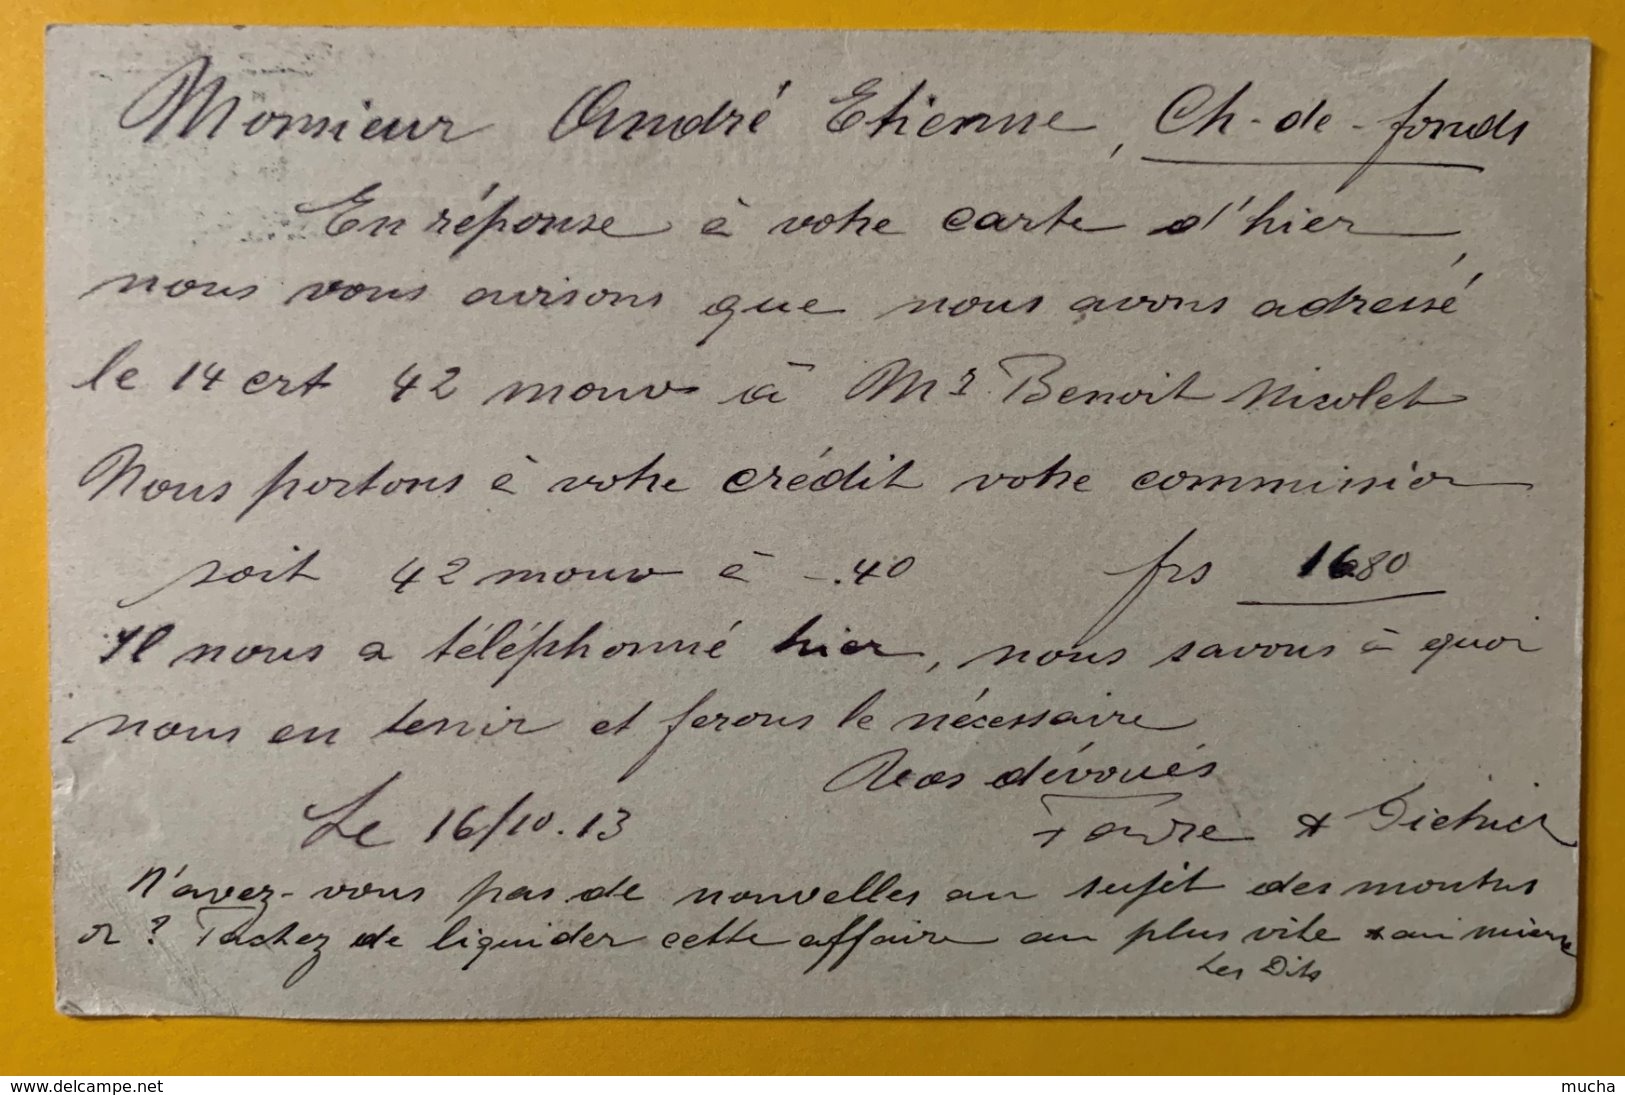 Monsieur André Etienne, Ch-de-fonds
En réponse à votre carte d'hier,
nous vous avisons que nous avons adressé
le 14 crt 42 mouv à Mr. Benoit Nicolet
Nous portons à votre crédit votre commission
soit 42 mouv à -.40 frs 16.80
Il nous a téléphonné hier, nous savons à quoi
nous en tenir et ferons le nécessaire
Vos dévoués
Le 16/10.13 Favre & Dietrich
N'avez-vous pas de nouvelles au sujet des montres
or? Tachez de liquider cette affaire au plus vite & au mieux
Les Dits
www.delcampe.net
mucha